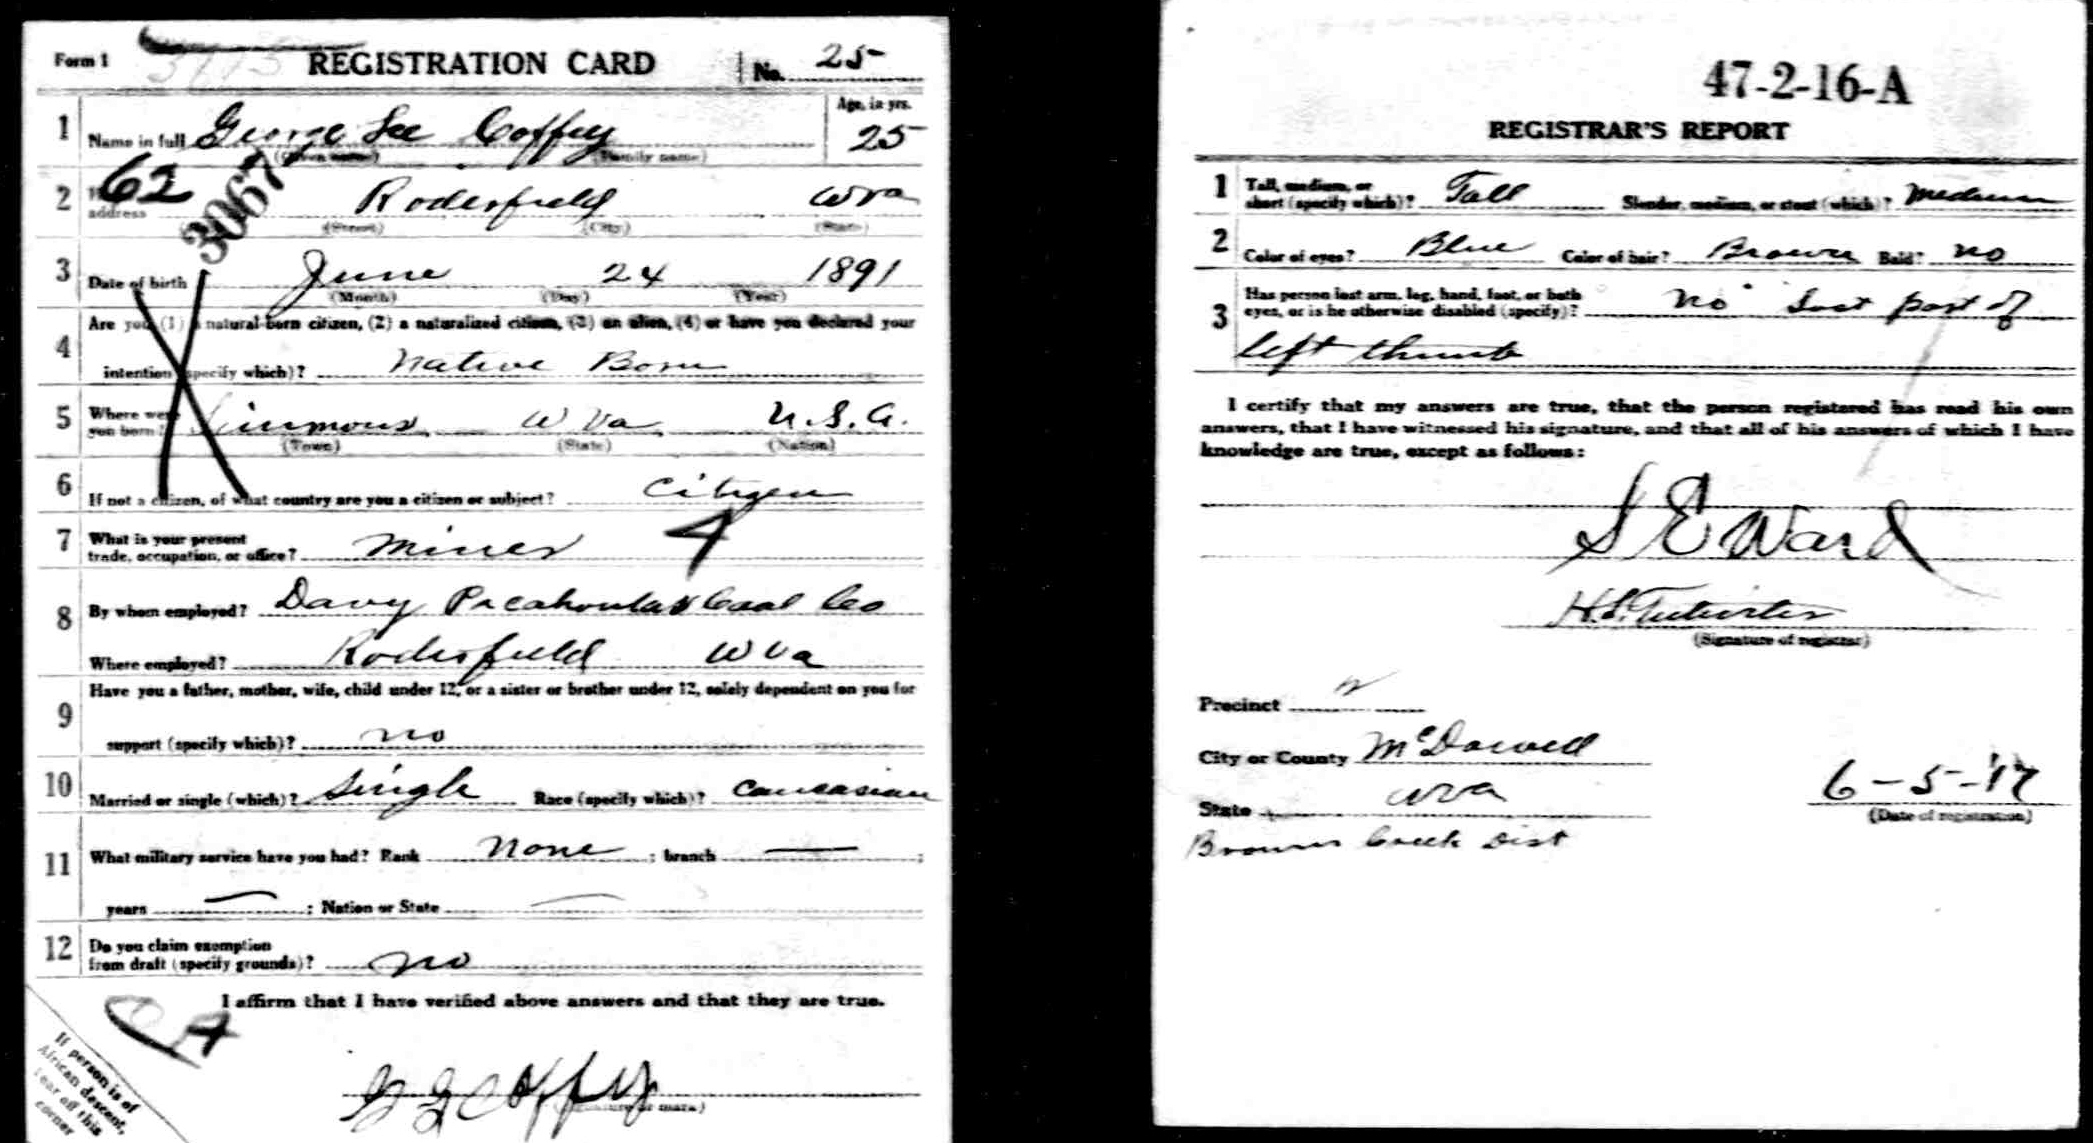 Form 1 REGISTRATION CARD No. 25
1 Name in full George Lee Coffey Age, in yrs. 25
(Given name) (Family name)
62
3067
2 address Roderfield W Va
(Street) (City) (State)
3 Date of birth June 24 1891
(Month) (Day) (Year)
4 Are you (1) a natural-born citizen, (2) a naturalized citizen, (3) an alien, (4) or have you declared your
intention (specify which)? Native Born
5 Where were you born? Simmons W Va U.S.A.
(Town) (State) (Nation)
6 If not a citizen, of what country are you a citizen or subject? Citizen
4
7 What is your present
trade, occupation, or office? Miner
8 By whom employed? Davy Pocahontas Coal Co
Where employed? Roderfield W Va
9 Have you a father, mother, wife, child under 12, or a sister or brother under 12, solely dependent on you for
support (specify which)? no
10 Married or single (which)? Single Race (specify which)? Caucasian
11 What military service have you had? Rank None ; branch — ;
years — ; Nation or State —
12 Do you claim exemption
from draft (specify grounds)? no
I affirm that I have verified above answers and that they are true.
G L Coffey
(Signature or mark)
If person is of
African descent,
tear off this
corner
47-2-16-A
REGISTRAR'S REPORT
1 Tall, medium, or
short (specify which)? Tall Slender, medium, or stout (which)? Medium
2 Color of eyes? Blue Color of hair? Brown Bald? no
3 Has person lost arm, leg, hand, foot, or both
eyes, or is he otherwise disabled (specify)? no Lost part of
left thumb
I certify that my answers are true, that the person registered has read his own
answers, that I have witnessed his signature, and that all of his answers of which I have
knowledge are true, except as follows:
S E Ward
(Signature of registrar)
Precinct
City or County McDowell
State W Va
6-5-'17
(Date of registration)
Browns Creek Dist